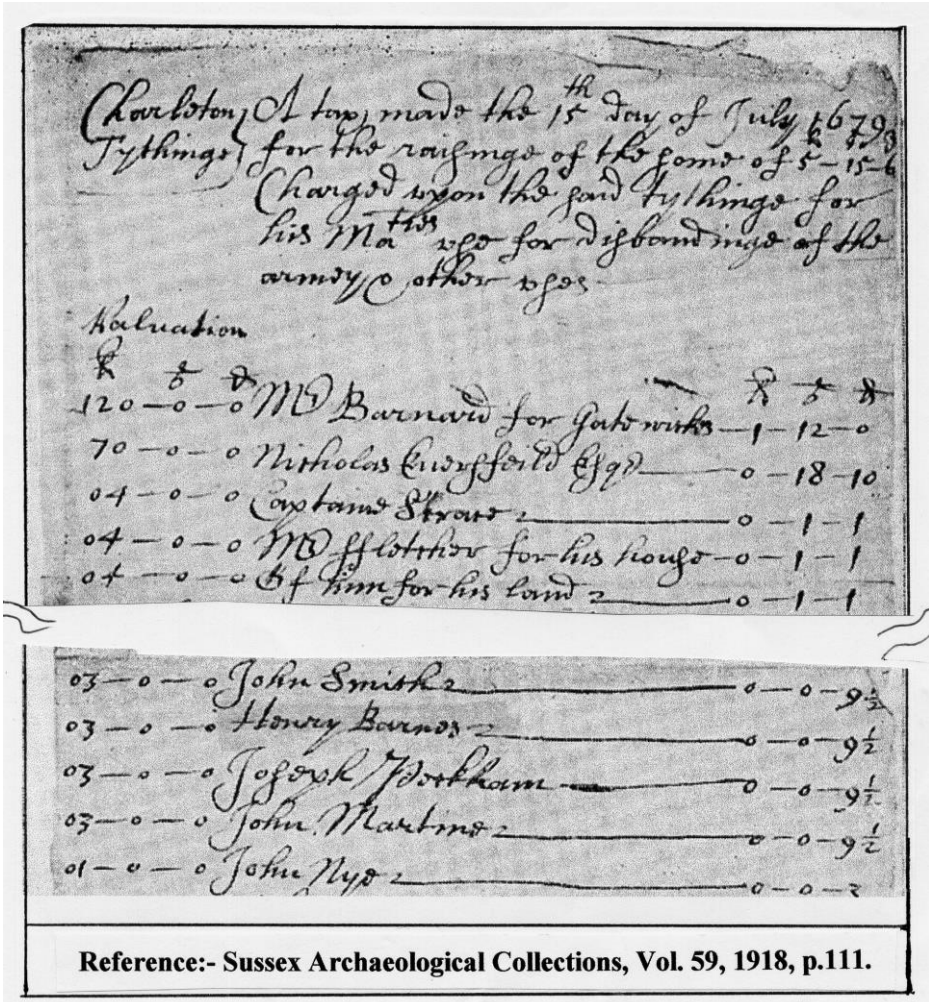 Charleton Tythinge
A tax made the 15th day of July 1679
for the raisinge of the some of 5 - 15 - 6
Charged upon the said Tythinge for
his Maties use for disbandinge of the
armey & other uses
Valuation
£ s d £ s d
120 - 0 - 0 Mr Barnard for Gatewicks 1 - 12 - 0
70 - 0 - 0 Nicholas Euersfeild Esqr 0 - 18 - 10
04 - 0 - 0 Captaine 0 - 1 - 1
04 - 0 - 0 Mr ffletcher for his house - 0 - 1 - 1
04 - 0 - 0 Of him for his land 0 - 1 - 1
03 - 0 - 0 John Smith 0 - 0 - 9 1/2
03 - 0 - 0 Henry Barnes 0 - 0 - 9 1/2
03 - 0 - 0 Joseph Peckham 0 - 0 - 9 1/2
03 - 0 - 0 John Martine 0 - 0 - 9 1/2
01 - 0 - 0 John Nye 0 - 0 - 3
Reference:- Sussex Archaeological Collections, Vol. 59, 1918, p.111.